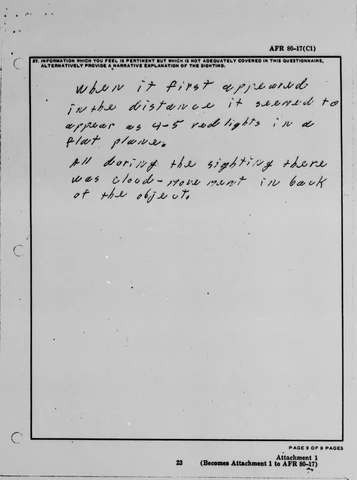 AFR 80-17(C1)
27. INFORMATION WHICH YOU FEEL IS PERTINENT BUT WHICH IS NOT ADEQUATELY COVERED IN THIS QUESTIONNAIRE,
ALTERNATIVELY PROVIDE A NARRATIVE EXPLANATION OF THE SIGHTING.
when it first appeared
in the distance it seemed to
appear as 4-5 red lights in a
flat plane.
All during the sighting there
was cloud-movement in back
of the object.
PAGE 9 OF 9 PAGES
Attachment 1
23 (Becomes Attachment 1 to AFR 80-17)